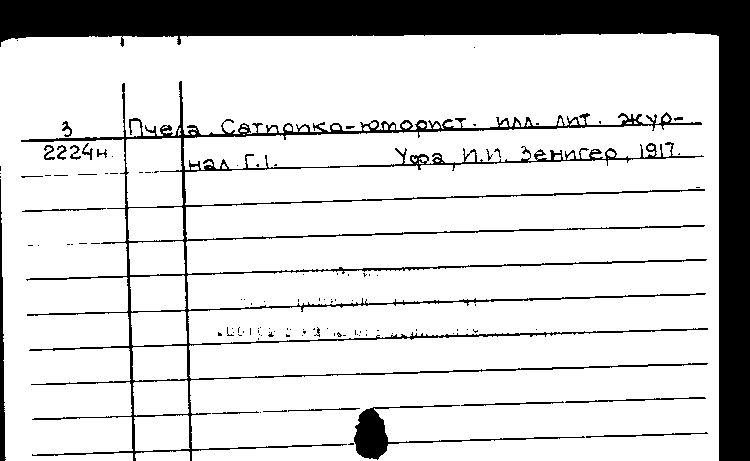 3 Пчела. Сатирико-юморист. илл. лит. жур-
2224н. нал Г.1. Уфа, И.И. Зенигер, 1917.